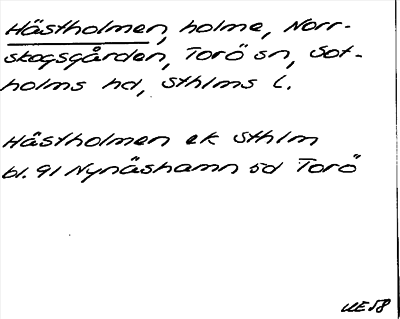 Hästholmen, holme, Norr-
skogsgården, Torö sn, Sot-
holms hd, Sthlms l.
Hästholmen ek Sthlm
bl. 91 Nynäshamn sd Torö
UE 58